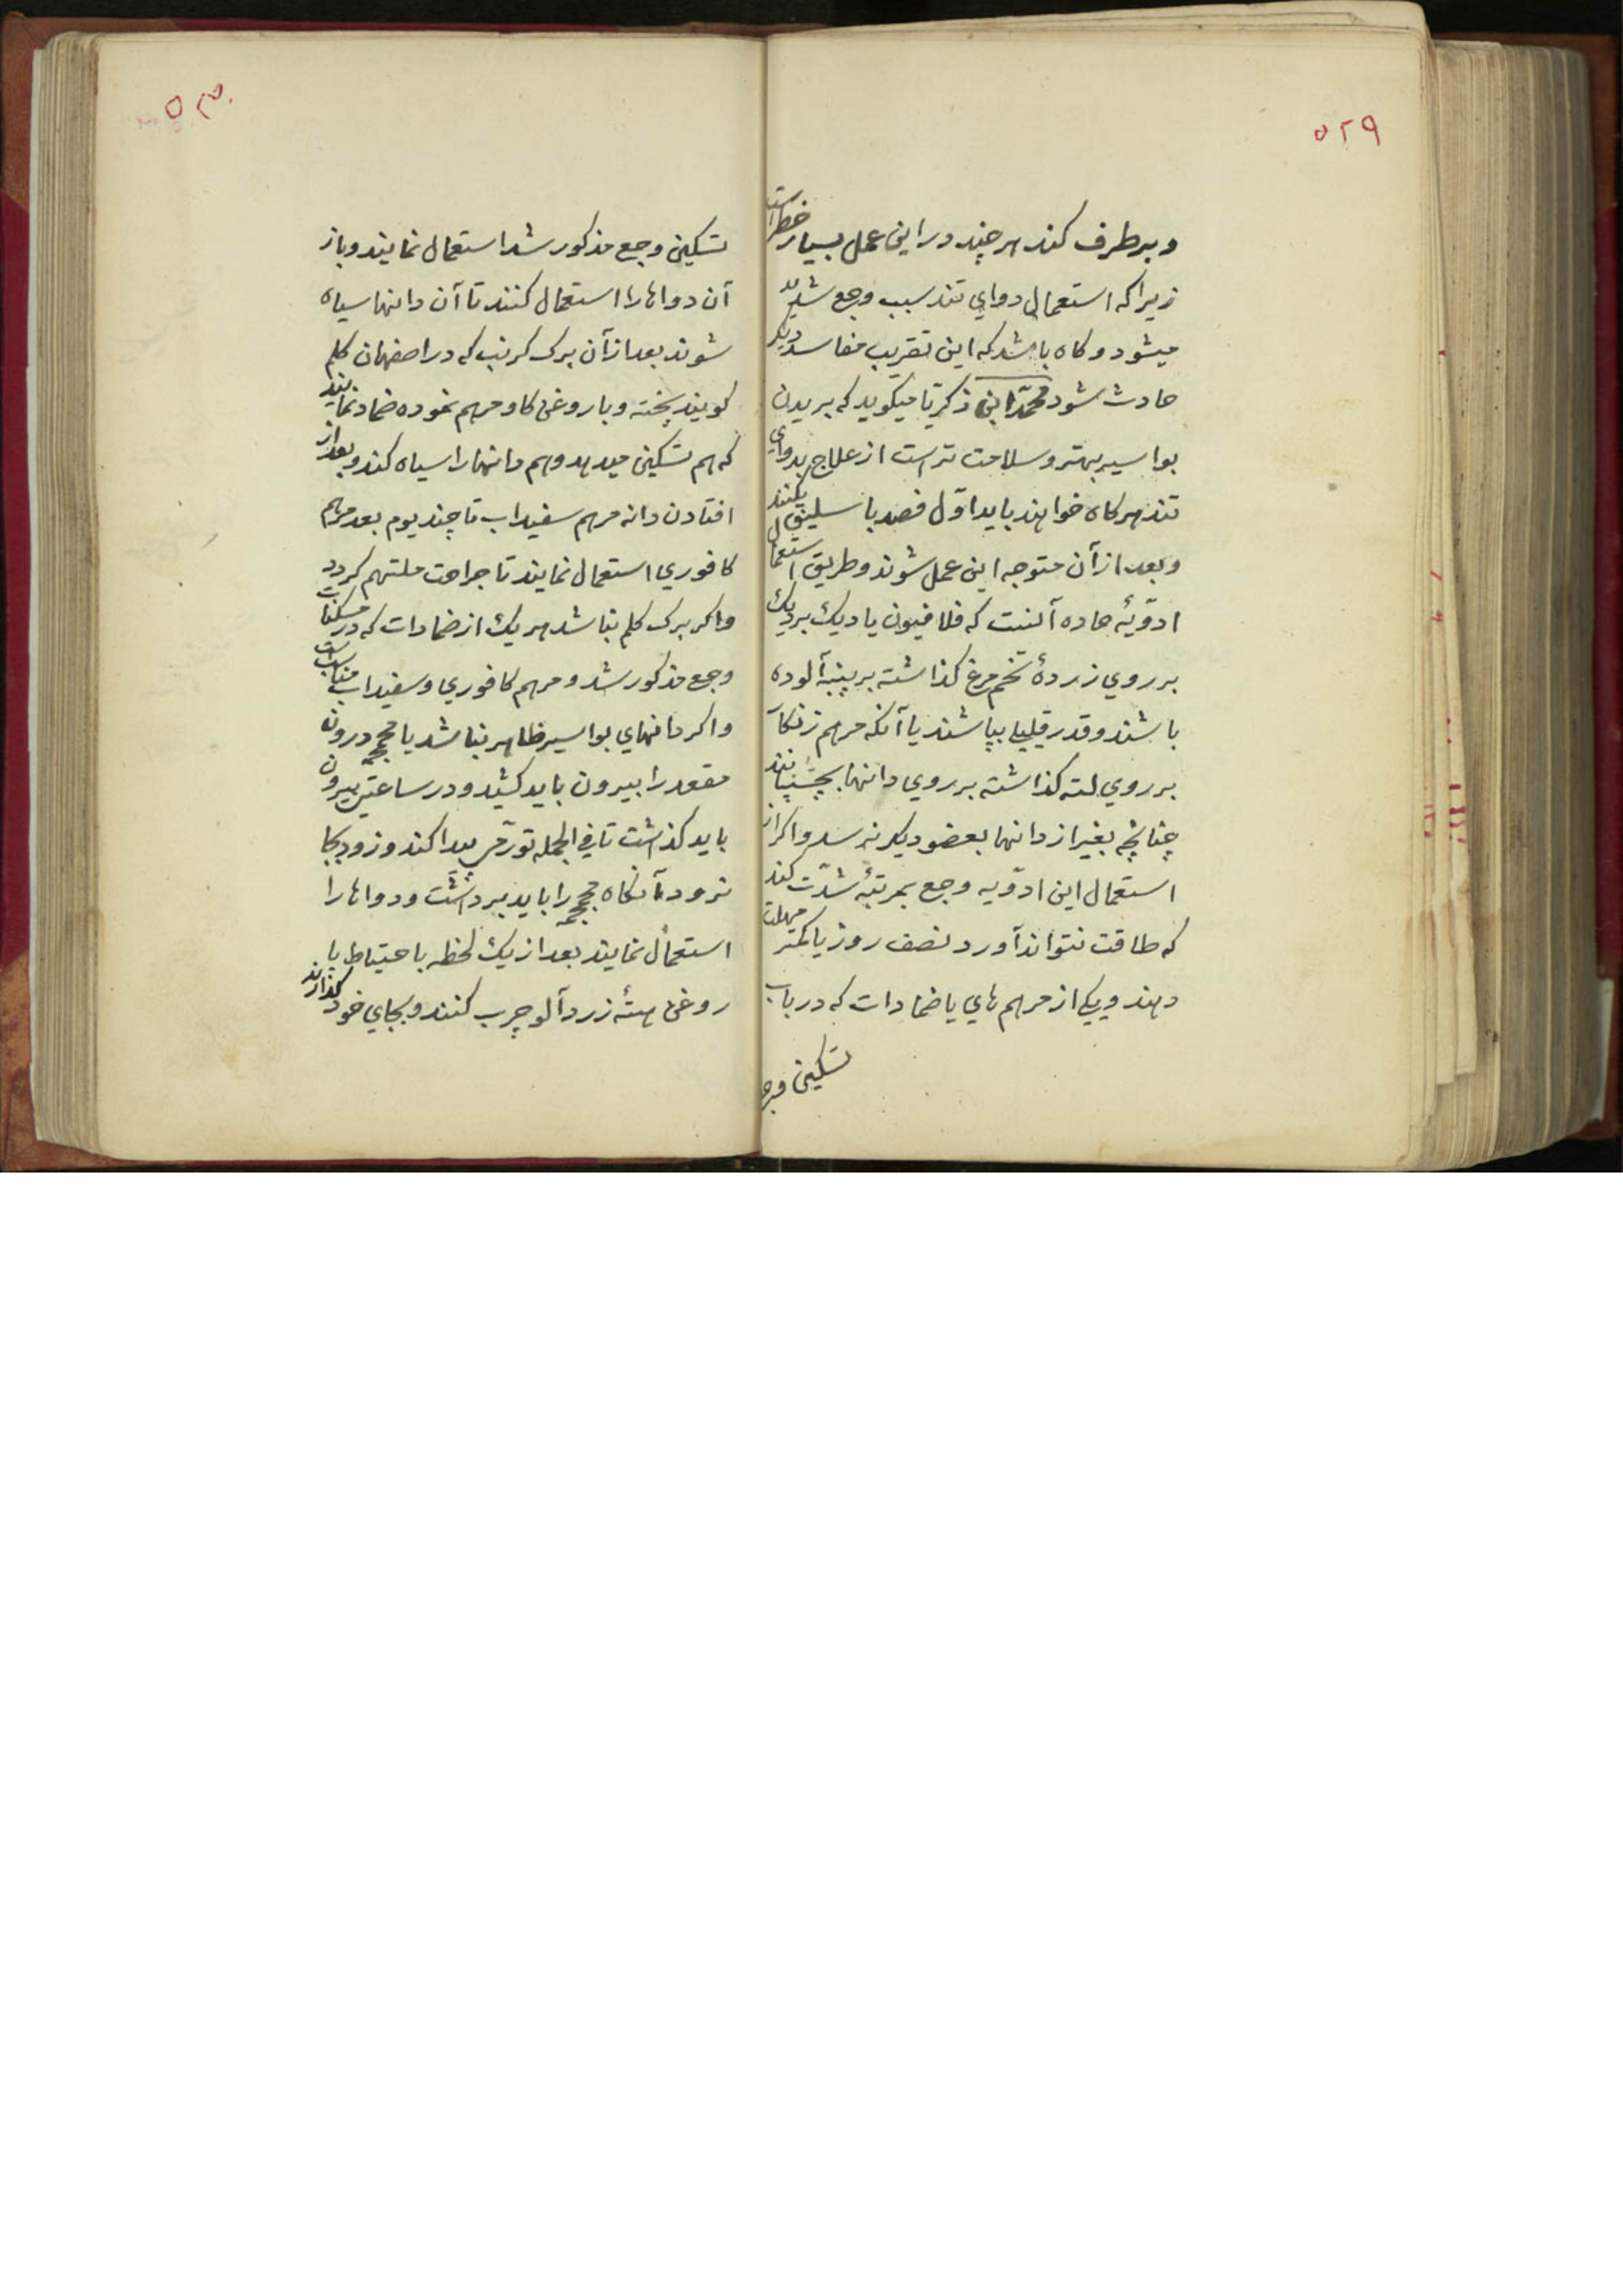 ۵۲۹
وبرطرف کند هرچند دراین عمل بسیار خطر است
زیراکه استعمال دوای تند سبب وجع شدید
میشود و کاه باشد که این تقریب مفاسد دیکر
حادث شود محمّد ابن ذکریا میکوید که بریدن
بواسیر بهتر وسلامت تراست از علاج بدوای
تند هرکاه خواهند باید اوّل فصد باسلیق بکنند
وبعد ازآن متوجه این عمل شوند وطریق استعمال
ادوّیهٔ حاده آنست که فلافیون یا دیك بردیك
برروی زردهٔ تخم مرغ کذاشته برپنبهٔ آلوده
باشند وقدر قلیلی بپاشند یا آنکه مرهم زنکار
برروی لته کذاشته برروی دانها بچسپانند
چنانچه بغیر از دانها بعضو دیکر نرسد واکر از
استعمال این ادوّیه وجع بمرتبهٔ شدّت کند
که طاقت نتواند آورد نصف روز یا کمتر مهلت
دهند ویکی از مرهم های یا ضمادات که در باب
تسکین وجع
۵۳۰
تسکین وجع مذکور شد استعمال نمایند وباز
آن دواها را استعمال کنند تا آن دانها سیاه
شوند بعد ازآن برک کرنب که در اصفهان کلم
کویند پخته وبا روغن کاو مرهم نموده ضماد نمایند
که هم تسکین میدهد وهم دانها را سیاه کند وبعد از
افتادن دانه مرهم سفیداب تا چند یوم بعد مرهم
کافوری استعمال نمایند تا جراحت ملتهم کردد
واکر برک کلم نباشد هریك از ضمادات که در مسکنات
وجع مذکور شد ومرهم کافوری وسفیداب مناسب است
واکر دانهای بواسیر ظاهر نباشد با محجمه درون
مقعد را بیرون باید کشید ودر ساعتی بیرون
باید کذاشت تا فی الجمله تورّمی پیدا کند وزود بجا
نرود آنکاه محجمه را باید برداشت ودواها را
استعمال نمایند بعد از یك لحظه باحتیاط با
روغن هستهٔ زردآلو چرب کنند وبجای خود کذارند